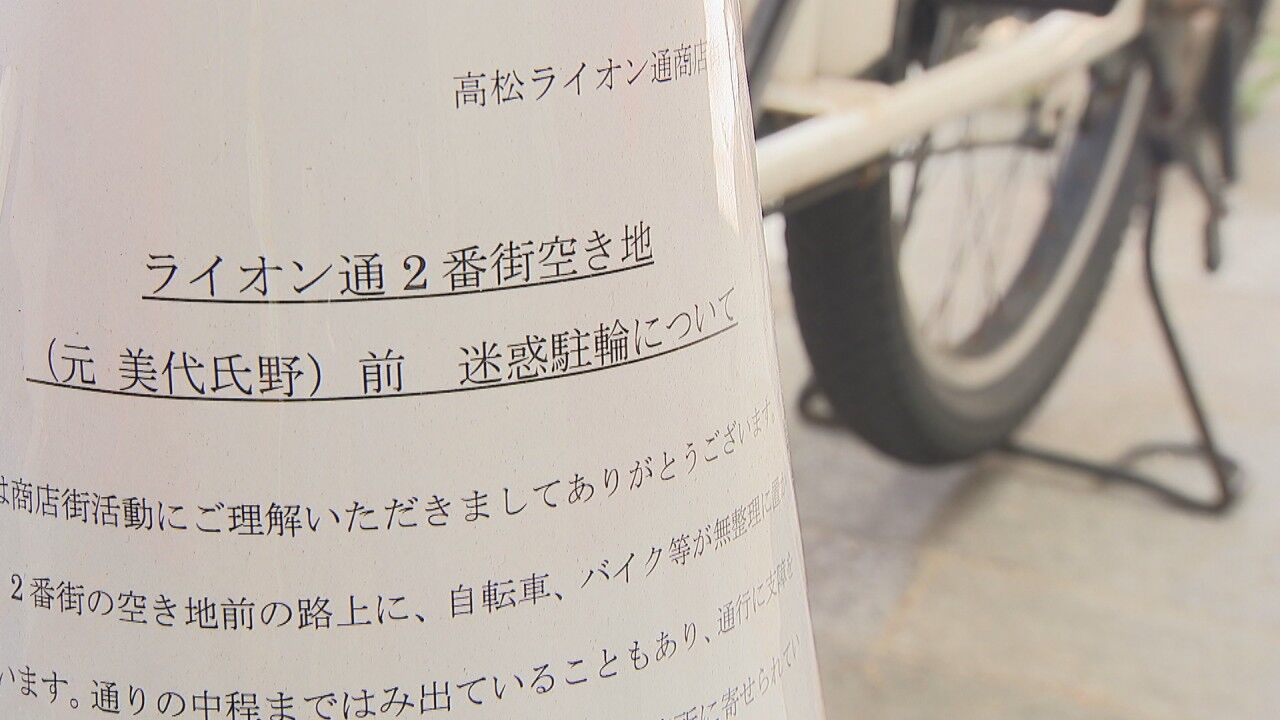 高松ライオン通商店
ライオン通２番街空き地
（元 美代氏野）前　迷惑駐輪について
は商店街活動にご理解いただきましてありがとうございます。
２番街の空き地前の路上に、自転車、バイク等が無整理に置か
います。通りの中程まではみ出ていることもあり、通行に支障を
に寄せられてい